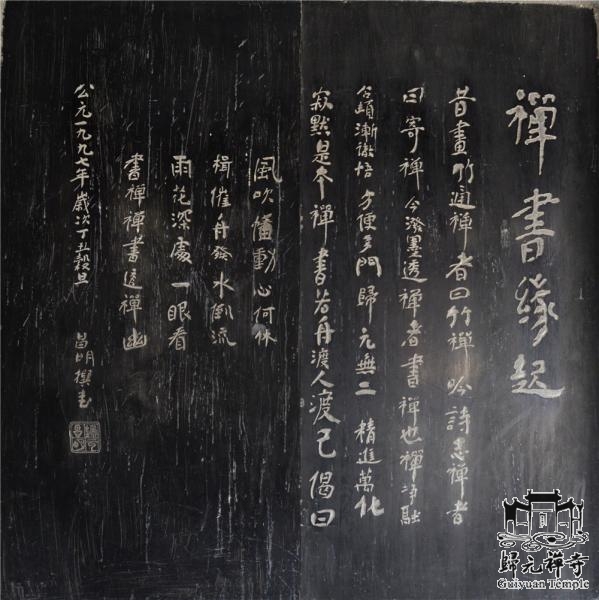 禪書緣起
昔畫竹通禪者曰竹禪吟詩禪者
曰寄禪今潑墨透禪者書禪也禪净融
合頓漸徹悟方便多門歸元無二精進萬化
寂默是禪書若舟渡人渡己偈曰
風吹幡動心何休
楫催舟發水倒流
雨花深處一眼看
書禪禪書透禪幽
公元一九九七年歲次丁丑穀旦
昌明撰书
歸元禅寺
Guiyuan Temple